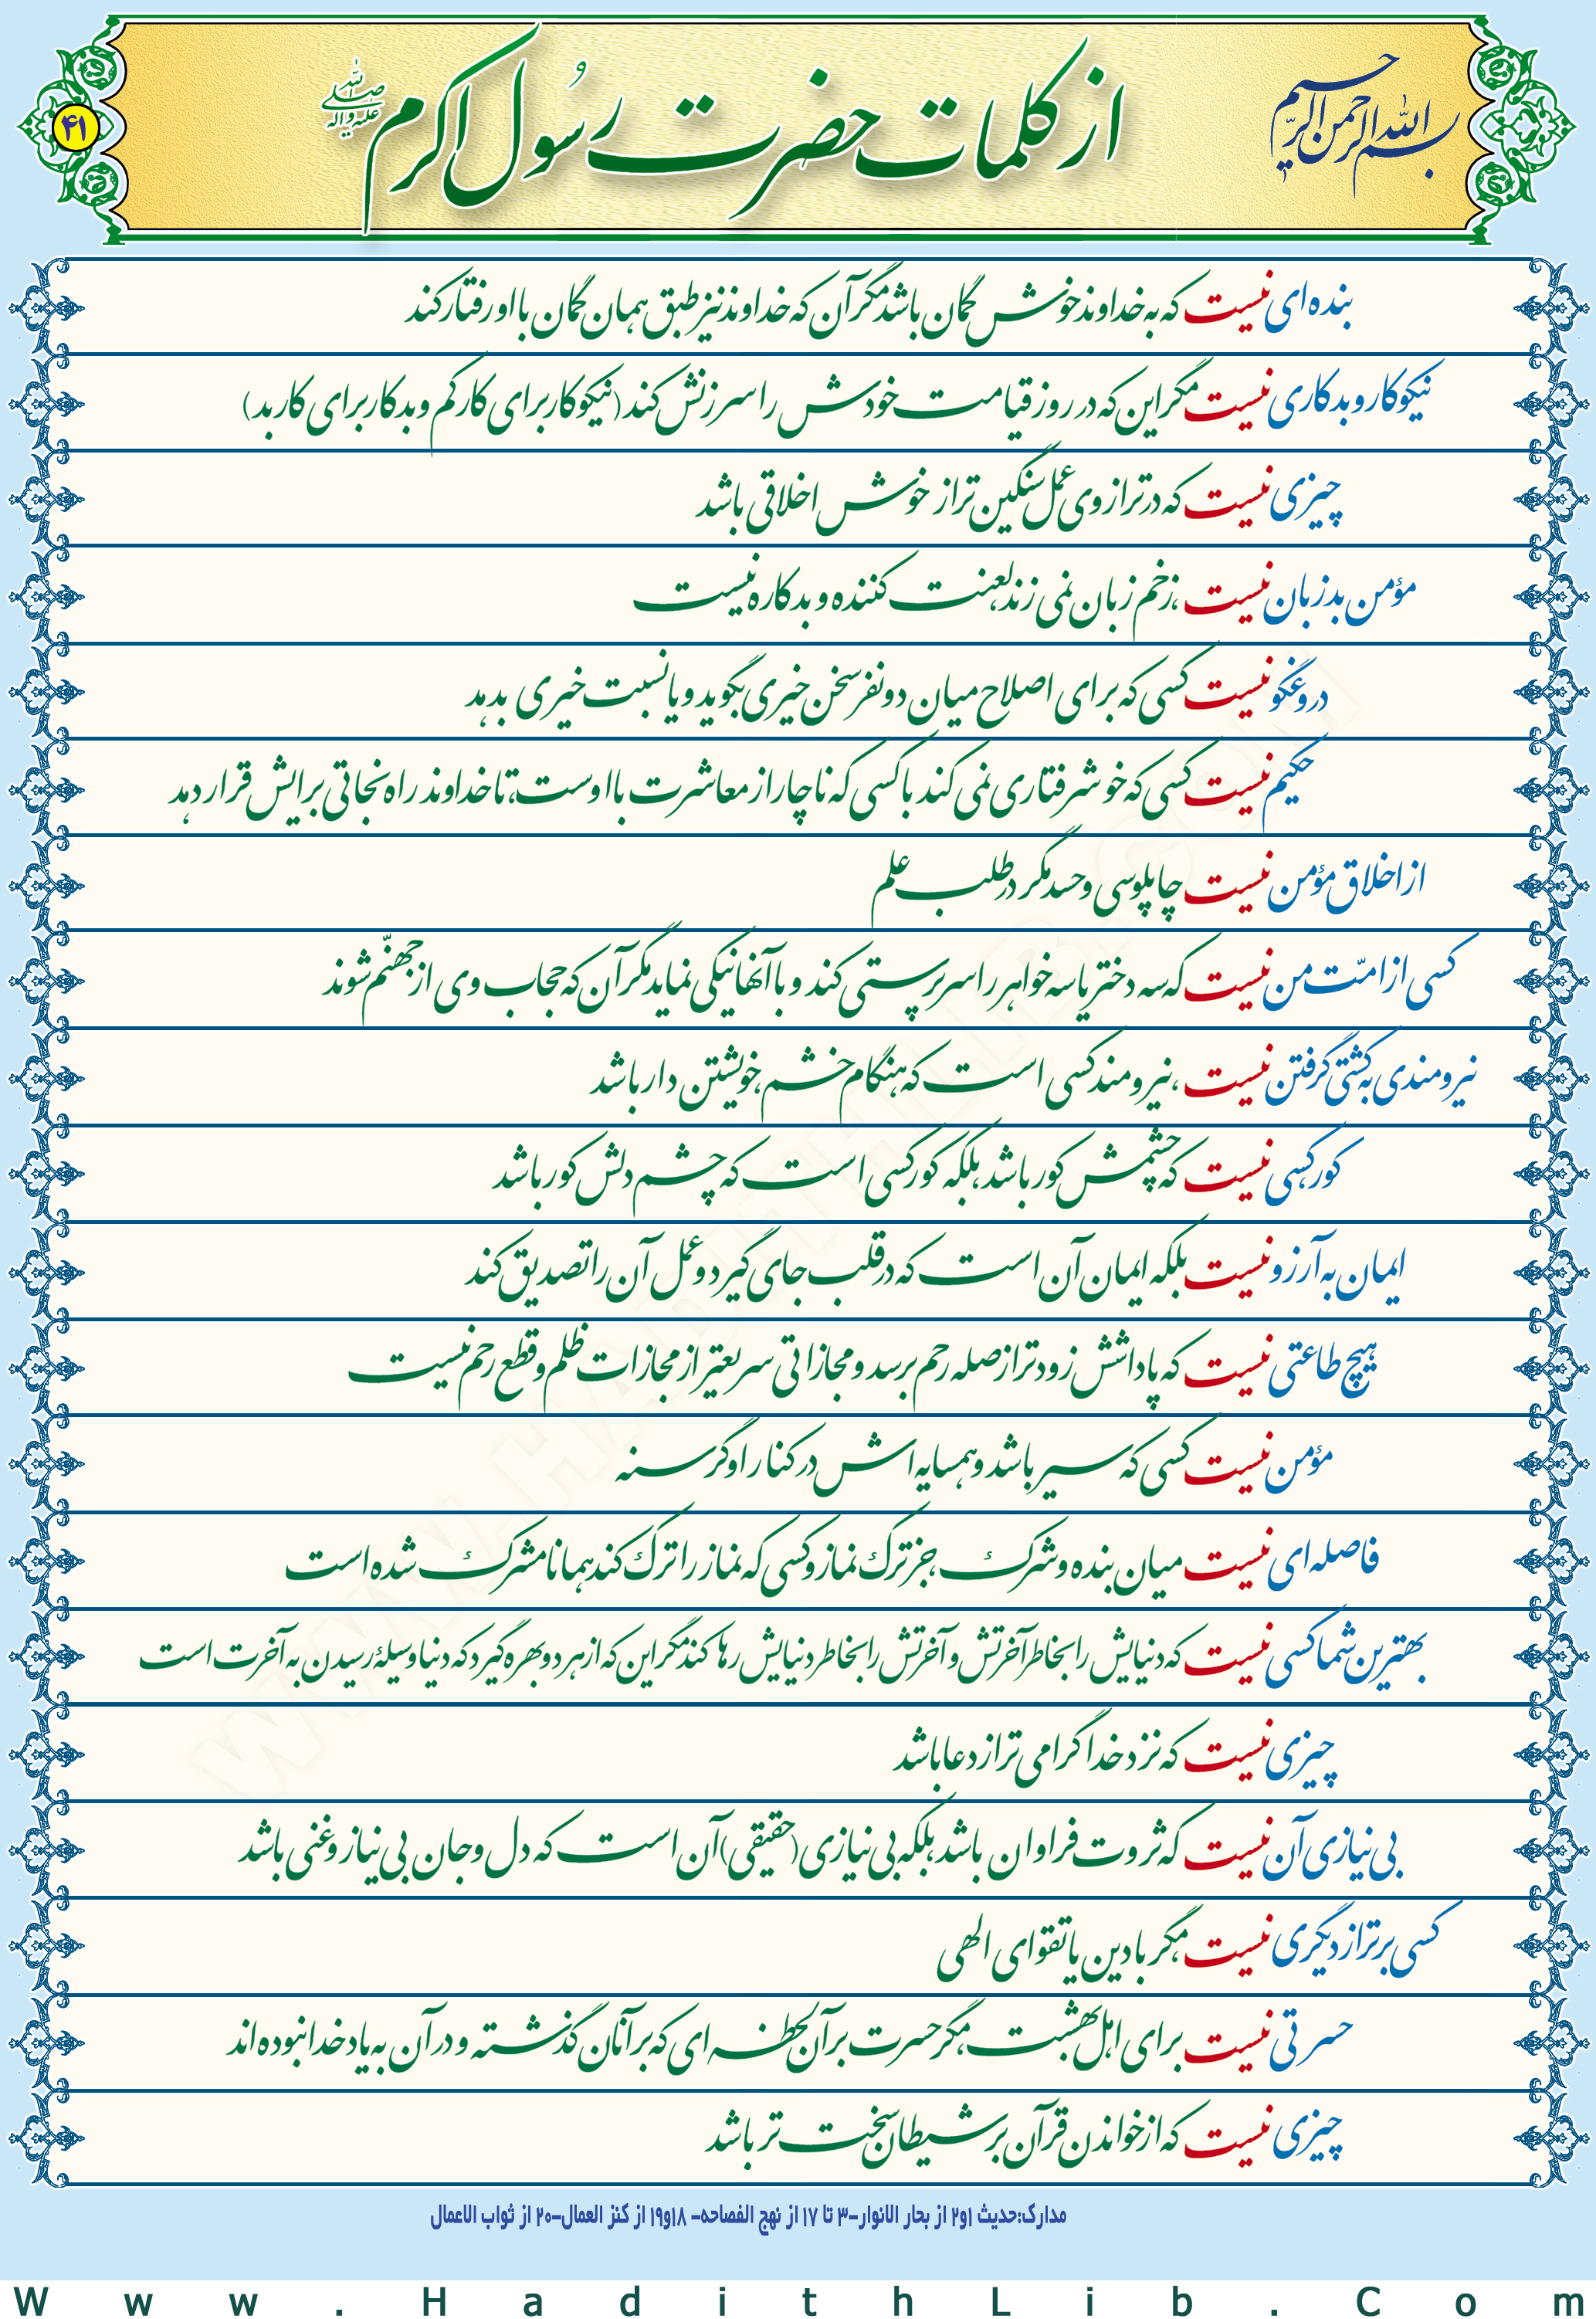 بسم الله الرحمن الرحیم
از کلمات حضرت رسول اکرم صلی الله علیه و اله
۴۱
بنده ای نیست که به خداوند خوش گمان باشد مگر آن که خداوند نیز طبق همان گمان با او رفتار کند
نیکوکار و بدکاری نیست مگر این که در روز قیامت خودش را سرزنش کند (نیکوکار برای کار کم و بدکار برای کار بد)
چیزی نیست که در ترازوی عمل سنگین تر از خوش اخلاقی باشد
مؤمن بد زبان نیست، زخم زبان نمی زند، لعنت کننده و بدکاره نیست
دروغگو نیست کسی که برای اصلاح میان دو نفر سخن خیری بگوید و یا نسبت خیری بدهد
حکیم نیست کسی که خوشرفتاری نمی کند با کسی که ناچار از معاشرت با اوست، تا خداوند راه نجاتی برایش قرار دهد
از اخلاق مؤمن نیست چاپلوسی و حسد مگر در طلب علم
کسی از امّت من نیست که سه دختر یا سه خواهر را سرپرستی کند و با آنها نیکی نماید مگر آن که حجاب وی از جهنّم شوند
نیرومندی به کشتی گرفتن نیست، نیرومند کسی است که هنگام خشم، خویشتن دار باشد
کور کسی نیست که چشمش کور باشد، بلکه کور کسی است که چشم دلش کور باشد
ایمان به آرزو نیست بلکه ایمان آن است که در قلب جای گیرد و عمل آن را تصدیق کند
هیچ طاعتی نیست که پاداشش زودتر از صله رحم برسد و مجازاتی سریعتر از مجازات ظلم و قطع رحم نیست
مؤمن نیست کسی که سیر باشد و همسایه اش در کنار او گرسنه
فاصله ای نیست میان بنده و شرک، جز ترک نماز و کسی که نماز را ترک کند همانا مشرک شده است
بهترین شما کسی نیست که دنیایش را بخاطر آخرتش و آخرتش را بخاطر دنیایش رها کند مگر این که از هر دو بهره گیرد که دنیا وسیلۀ رسیدن به آخرت است
چیزی نیست که نزد خدا گرامی تر از دعا باشد
بی نیازی آن نیست که ثروت فراوان باشد، بلکه بی نیازی (حقیقی) آن است که دل و جان بی نیاز و غنی باشد
کسی برتر از دیگری نیست، مگر با دین یا تقوای الهی
حسرتی نیست برای اهل بهشت، مگر حسرت بر آن لحظه ای که بر آنان گذشته و در آن به یاد خدا نبوده اند
چیزی نیست که از خواندن قرآن بر شیطان سخت تر باشد
مدارک:حدیث ۱و۲ از بحار الانوار-۳ تا ۱۷ از نهج الفصاحه- ۱۸و۱۹ از کنز العمال-۲۰ از ثواب الاعمال
Www.HadithLib.Com